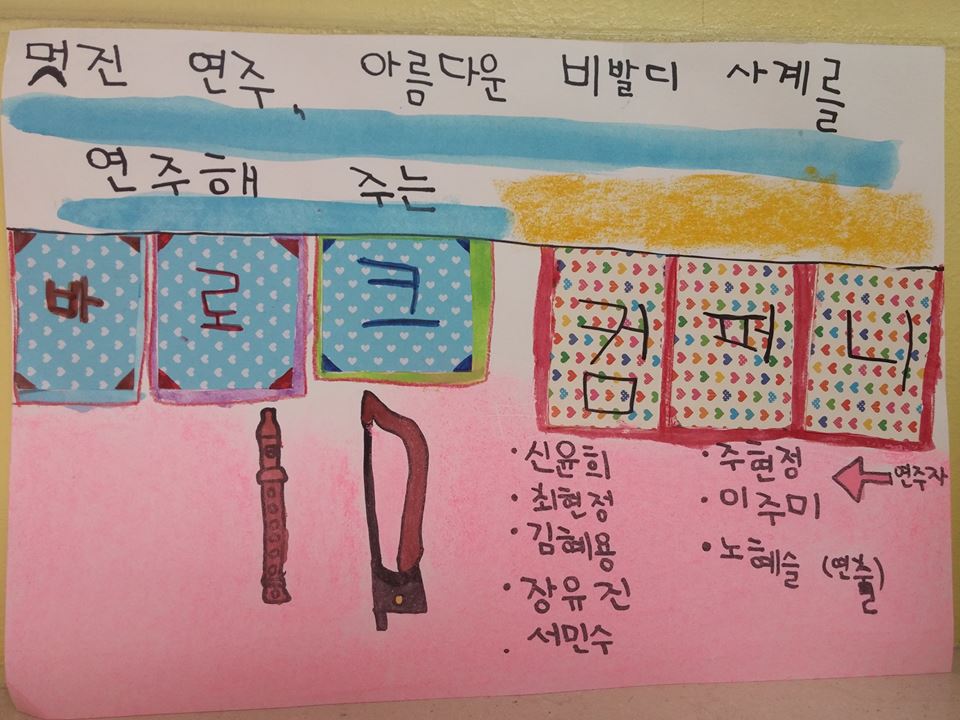 멋진 연주, 아름다운 비발디 사계를
연주해 주는
바로크 컴퍼니
· 신윤희
· 최현정
· 김혜용
· 장유진
· 서민수
· 주현정
· 이주미
· 노혜슬 (연출)
연주자